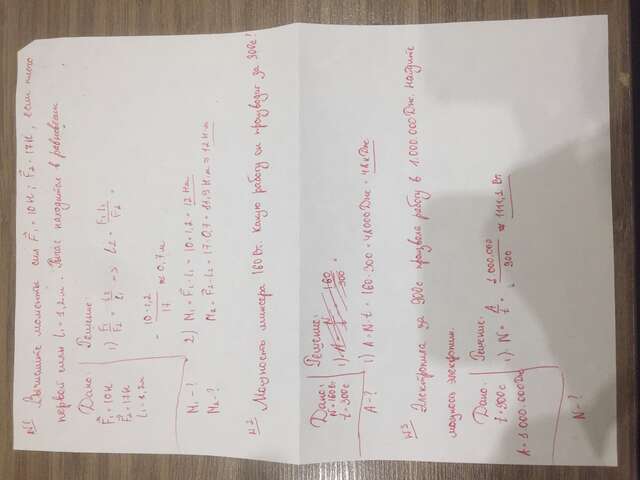 №1 Вычислите моменты сил F₁=10Н; F₂=17Н, если плечо
первой силы L₁=1,2м. Рычаг находится в равновесии
Дано:
F₁=10Н
F₂=17Н
L₁=1,2м
M₁-?
M₂-?
Решение:
1) F₁/F₂ = L₂/L₁ => L₂ = F₁L₁/F₂ =
= 10·1,2/17 ≈ 0,7м
2) M₁=F₁·L₁=10·1,2=12Н.м
M₂=F₂·L₂=17·0,7=11,9Н.м≈12Н.м
№2 Мощность миксера 160Вт. Какую работу он произведёт за 300с?
Дано:
N=160Вт
t=300с
A-?
Решение:
1) A=N·t=160·300=48000Дж=48кДж
№3 Электропила за 900с произвела работу в 1.000.000Дж. Найдите
мощность электропилы.
Дано:
t=900с
A=1.000.000Дж
N-?
Решение:
1) N=A/t=1000.000/900≈1111,1Вт